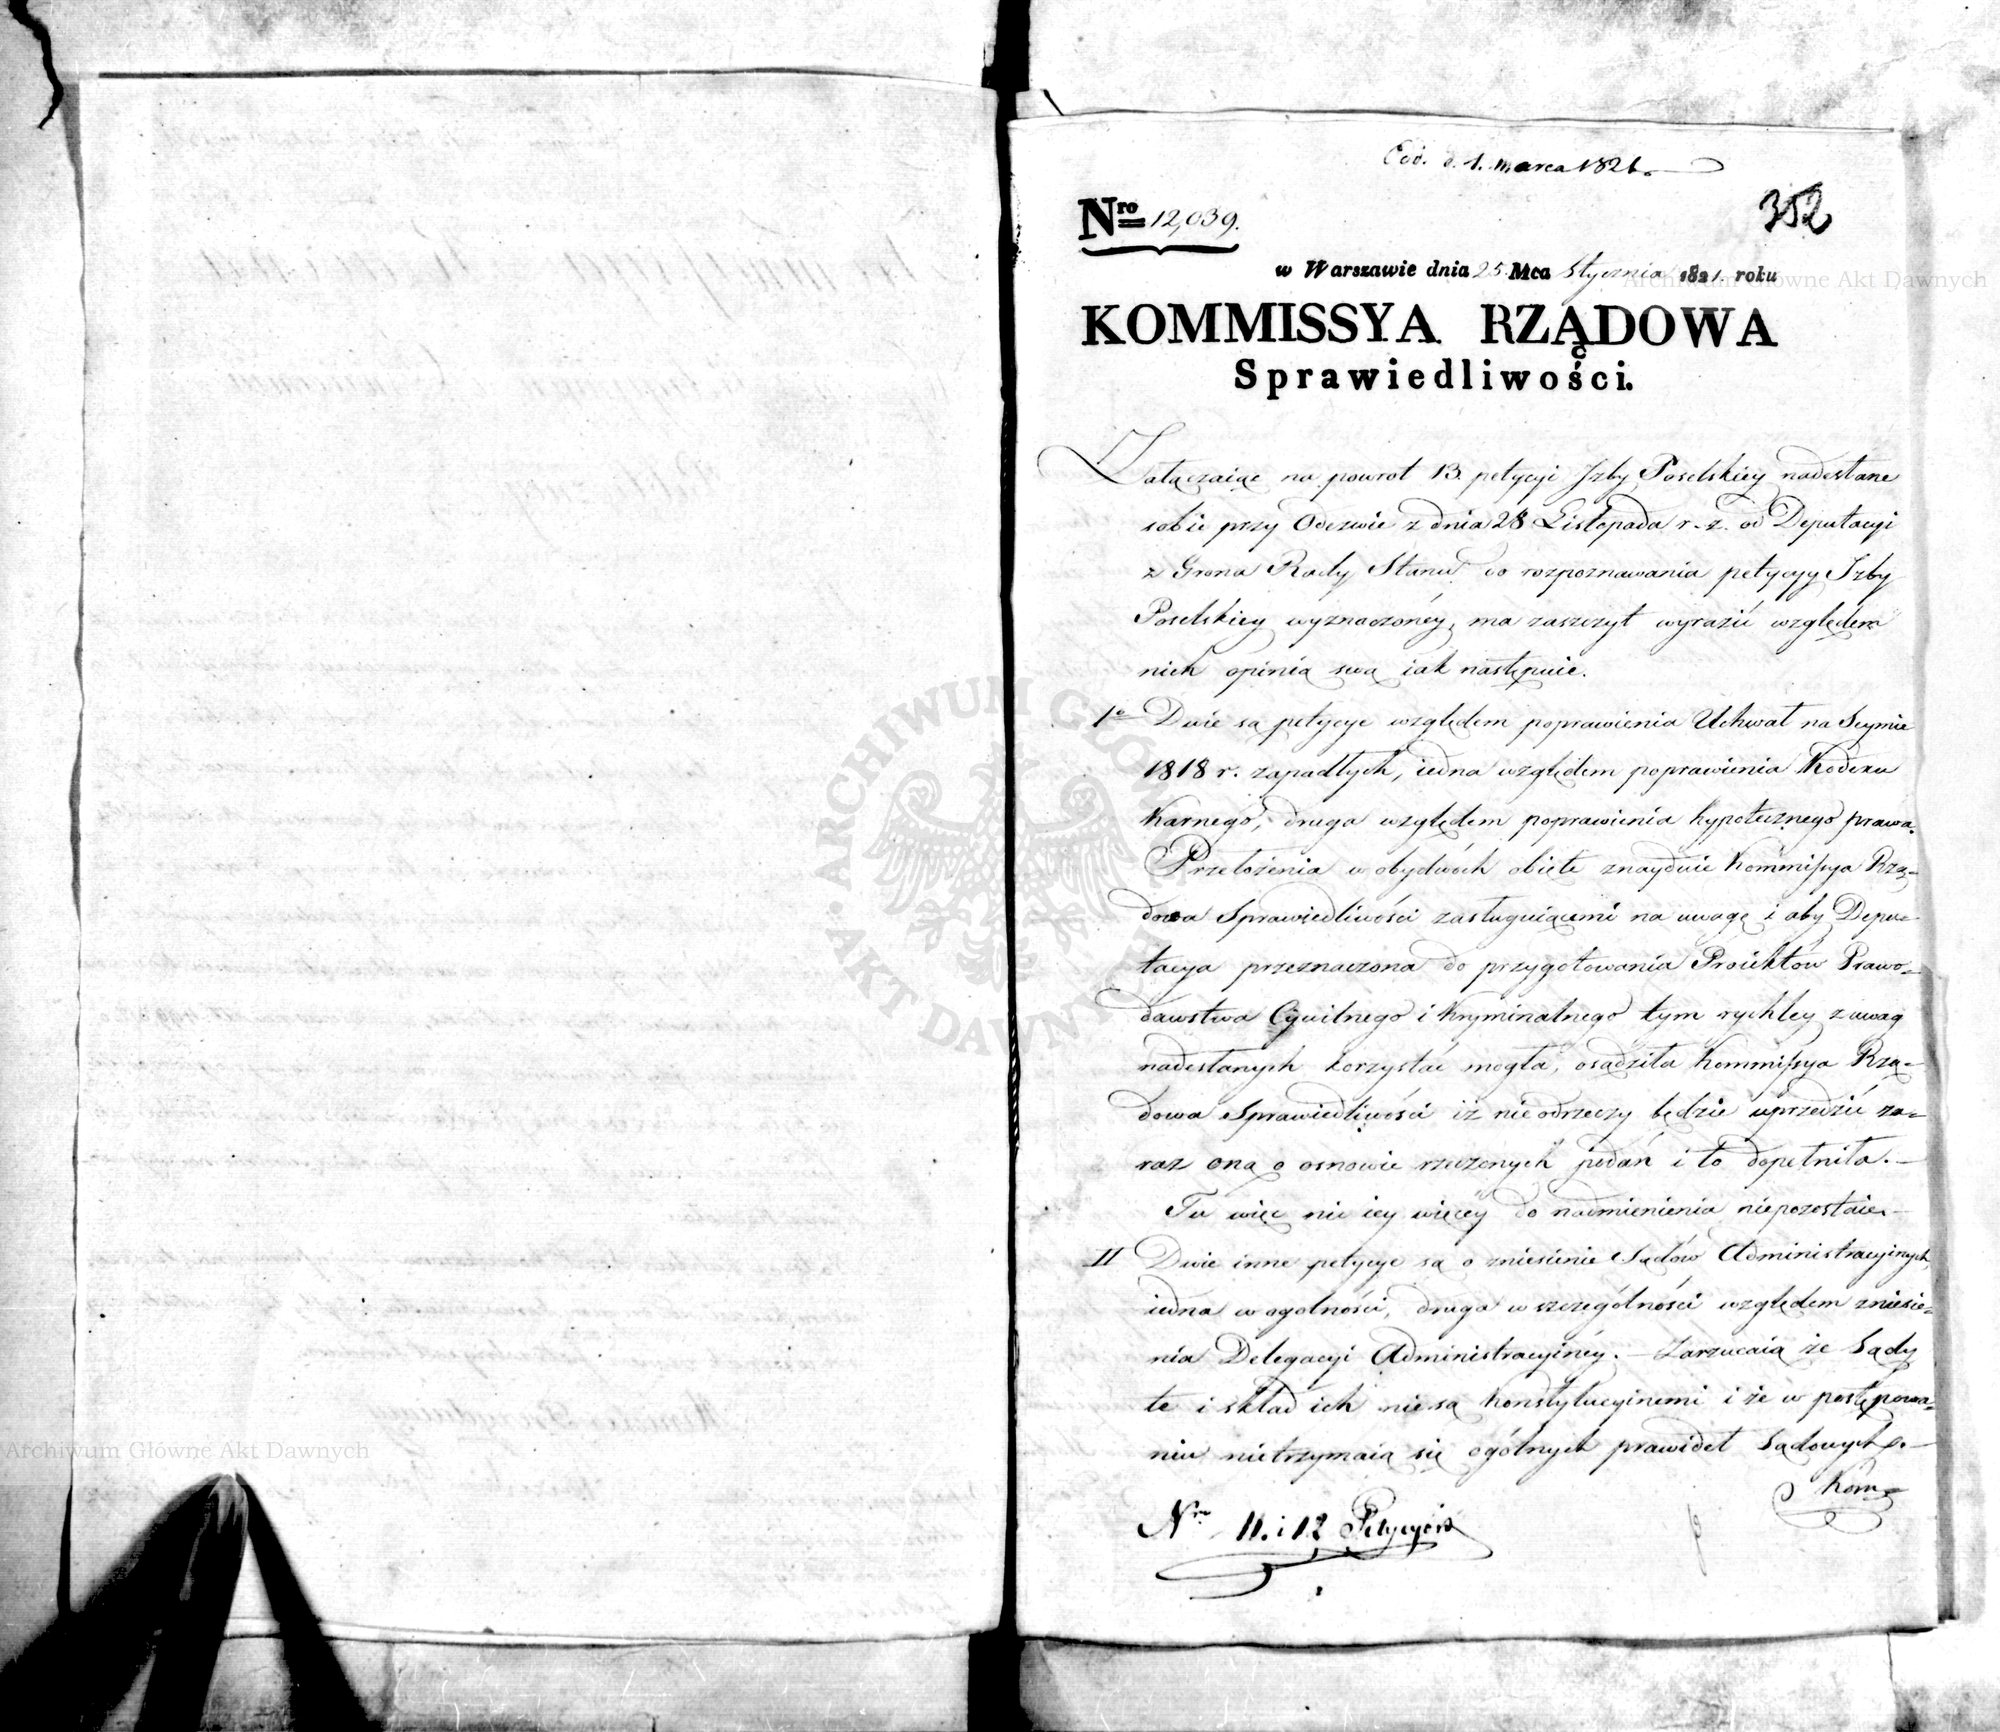 d. 1. marca 1821.
352
Nro 12,039.
w Warszawie dnia 25 Mca Stycznia 1821. roku
KOMMISSYA RZĄDOWA
Sprawiedliwości.
Załączaiąc na powrot 13. petycyi Izby Poselskiey nadesłane
sobie przy Odezwie z dnia 28 Listopada r. z. od Deputacyi
z Grona Rady Stanu do rozpoznawania petycyy Izby
Poselskiey wyznaczonéy, ma zaszczyt wyrazić względem
nich opinią swą iak następuie.
1o Dwie są petycye względem poprawienia Uchwał na Seymie
1818 r. zapadłych, iedna względem poprawienia Kodexu
Karnego, druga względem poprawienia hypotecznego prawa.
Przełożenia w obydwóch obiete znayduie Kommissya Rzą=
dowa Sprawiedliwości zasługuiącemi na uwagę i aby Depu=
tacya przeznaczona do przygotowania Proiektów Prawo=
dawstwa Cywilnego i Kryminalnego tym rychley z uwag
nadesłanych korzystać mogła, osądziła Kommissya Rzą=
dowa Sprawiedliwości iż nieodrzeczy będzie uprzedzić za=
raz oną o osnowie rzeczonych podań i to dopełniła.—
Tu więc nic iey więcey do nadmienienia niepozostaie.—
II Dwie inne petycye są o zniesienie Sądów Administracyinych,
iedna w ogolności, druga w szczególności względem zniesie=
nia Delegacyi Administracyinéy.— Zarzucaią że Sądy
te i skład ich nie są Konstytucyinemi i że w postępowa=
niu nietrzymaią się ogólnych prawideł Sądowych.—
Kom=
Nro 11. i 12 Petycyów
Archiwum Główne Akt Dawnych
Archiwum Główne Akt Dawnych
ARCHIWUM GŁÓWNE · AKT DAWNYCH